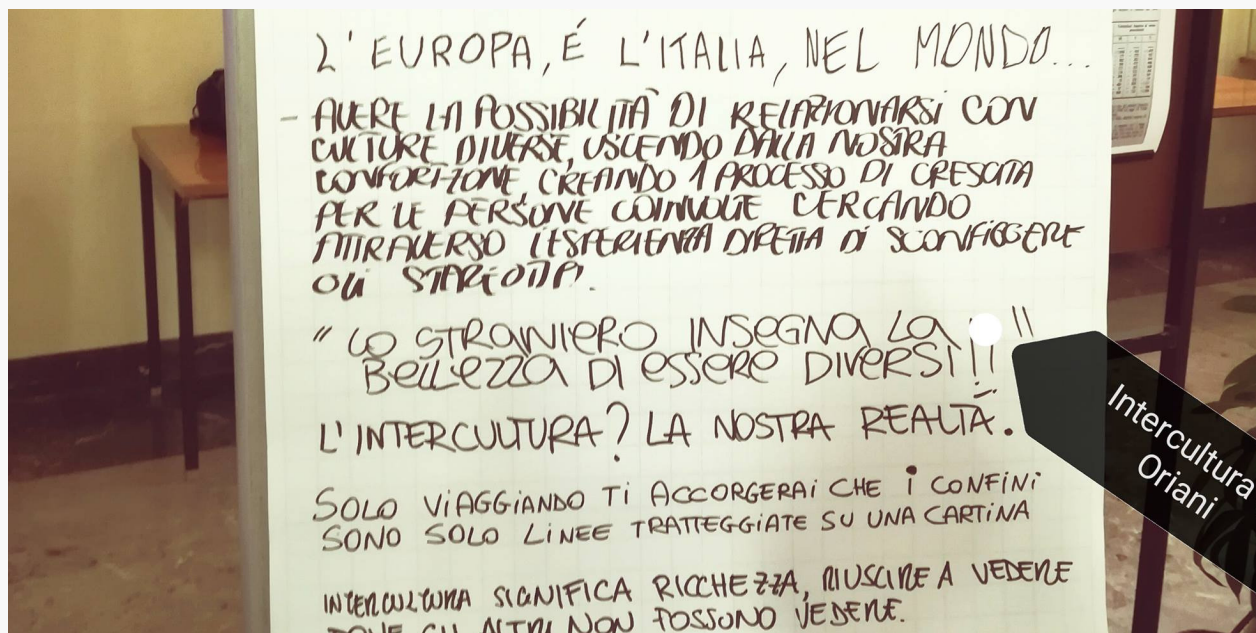 L'EUROPA, É L'ITALIA, NEL MONDO...
- AVERE LA POSSIBILITÀ DI RELAZIONARSI CON
CULTURE DIVERSE, USCENDO DALLA NOSTRA
CONFORT-ZONE, CREANDO 1 PROCESSO DI CRESCITA
PER LE PERSONE COINVOLTE CERCANDO
ATTRAVERSO L'ESPERIENZA DIRETTA DI SCONFIGGERE
GLI STAREOTIPI.
"LO STRANIERO INSEGNA LA "
BELLEZZA DI ESSERE DIVERSI!!
L'INTERCULTURA? LA NOSTRA REALTÀ.
SOLO VIAGGIANDO TI ACCORGERAI CHE I CONFINI
SONO SOLO LINEE TRATTEGGIATE SU UNA CARTINA
INTERCULTURA SIGNIFICA RICCHEZZA, RIUSCIRE A VEDERE
DOVE GLI ALTRI NON POSSONO VEDERE.
Intercultura
Oriani